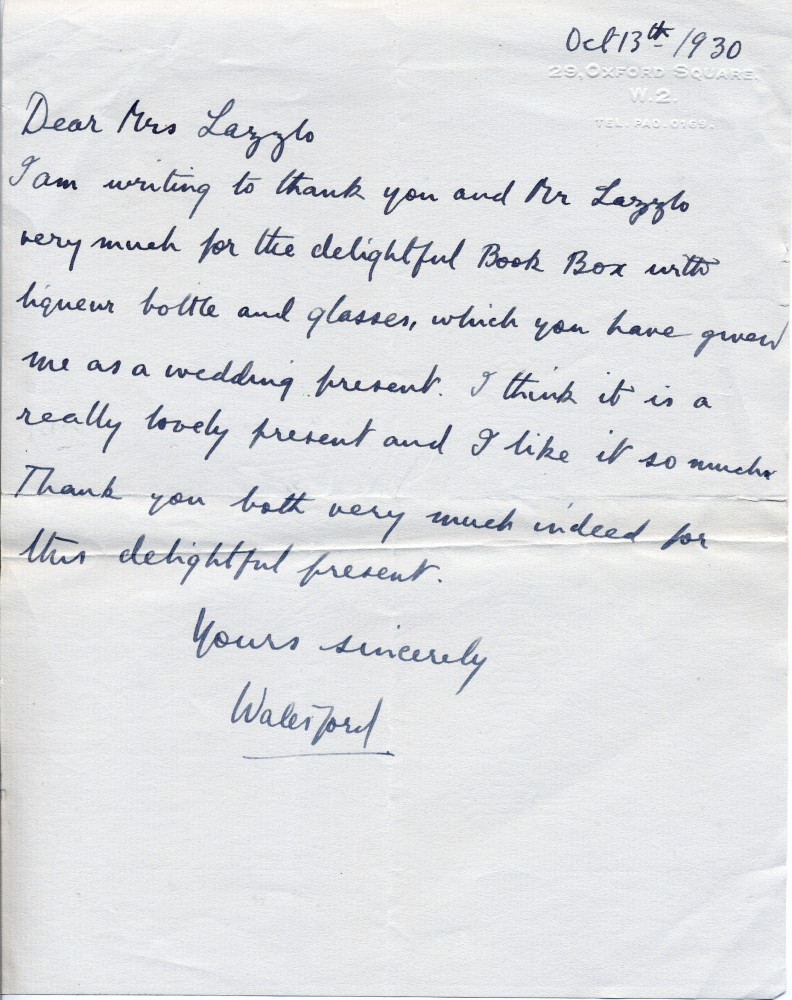 Oct 13th /1930
29, OXFORD SQUARE,
W.2.
TEL. PAD. 0169.
Dear Mrs Lazzlo
I am writing to thank you and Mr Lazzlo
very much for the delightful Book Box with
liqueur bottle and glasses, which you have given
me as a wedding present. I think it is a
really lovely present and I like it so much.
Thank you both very much indeed for
this delightful present.
Yours sincerely